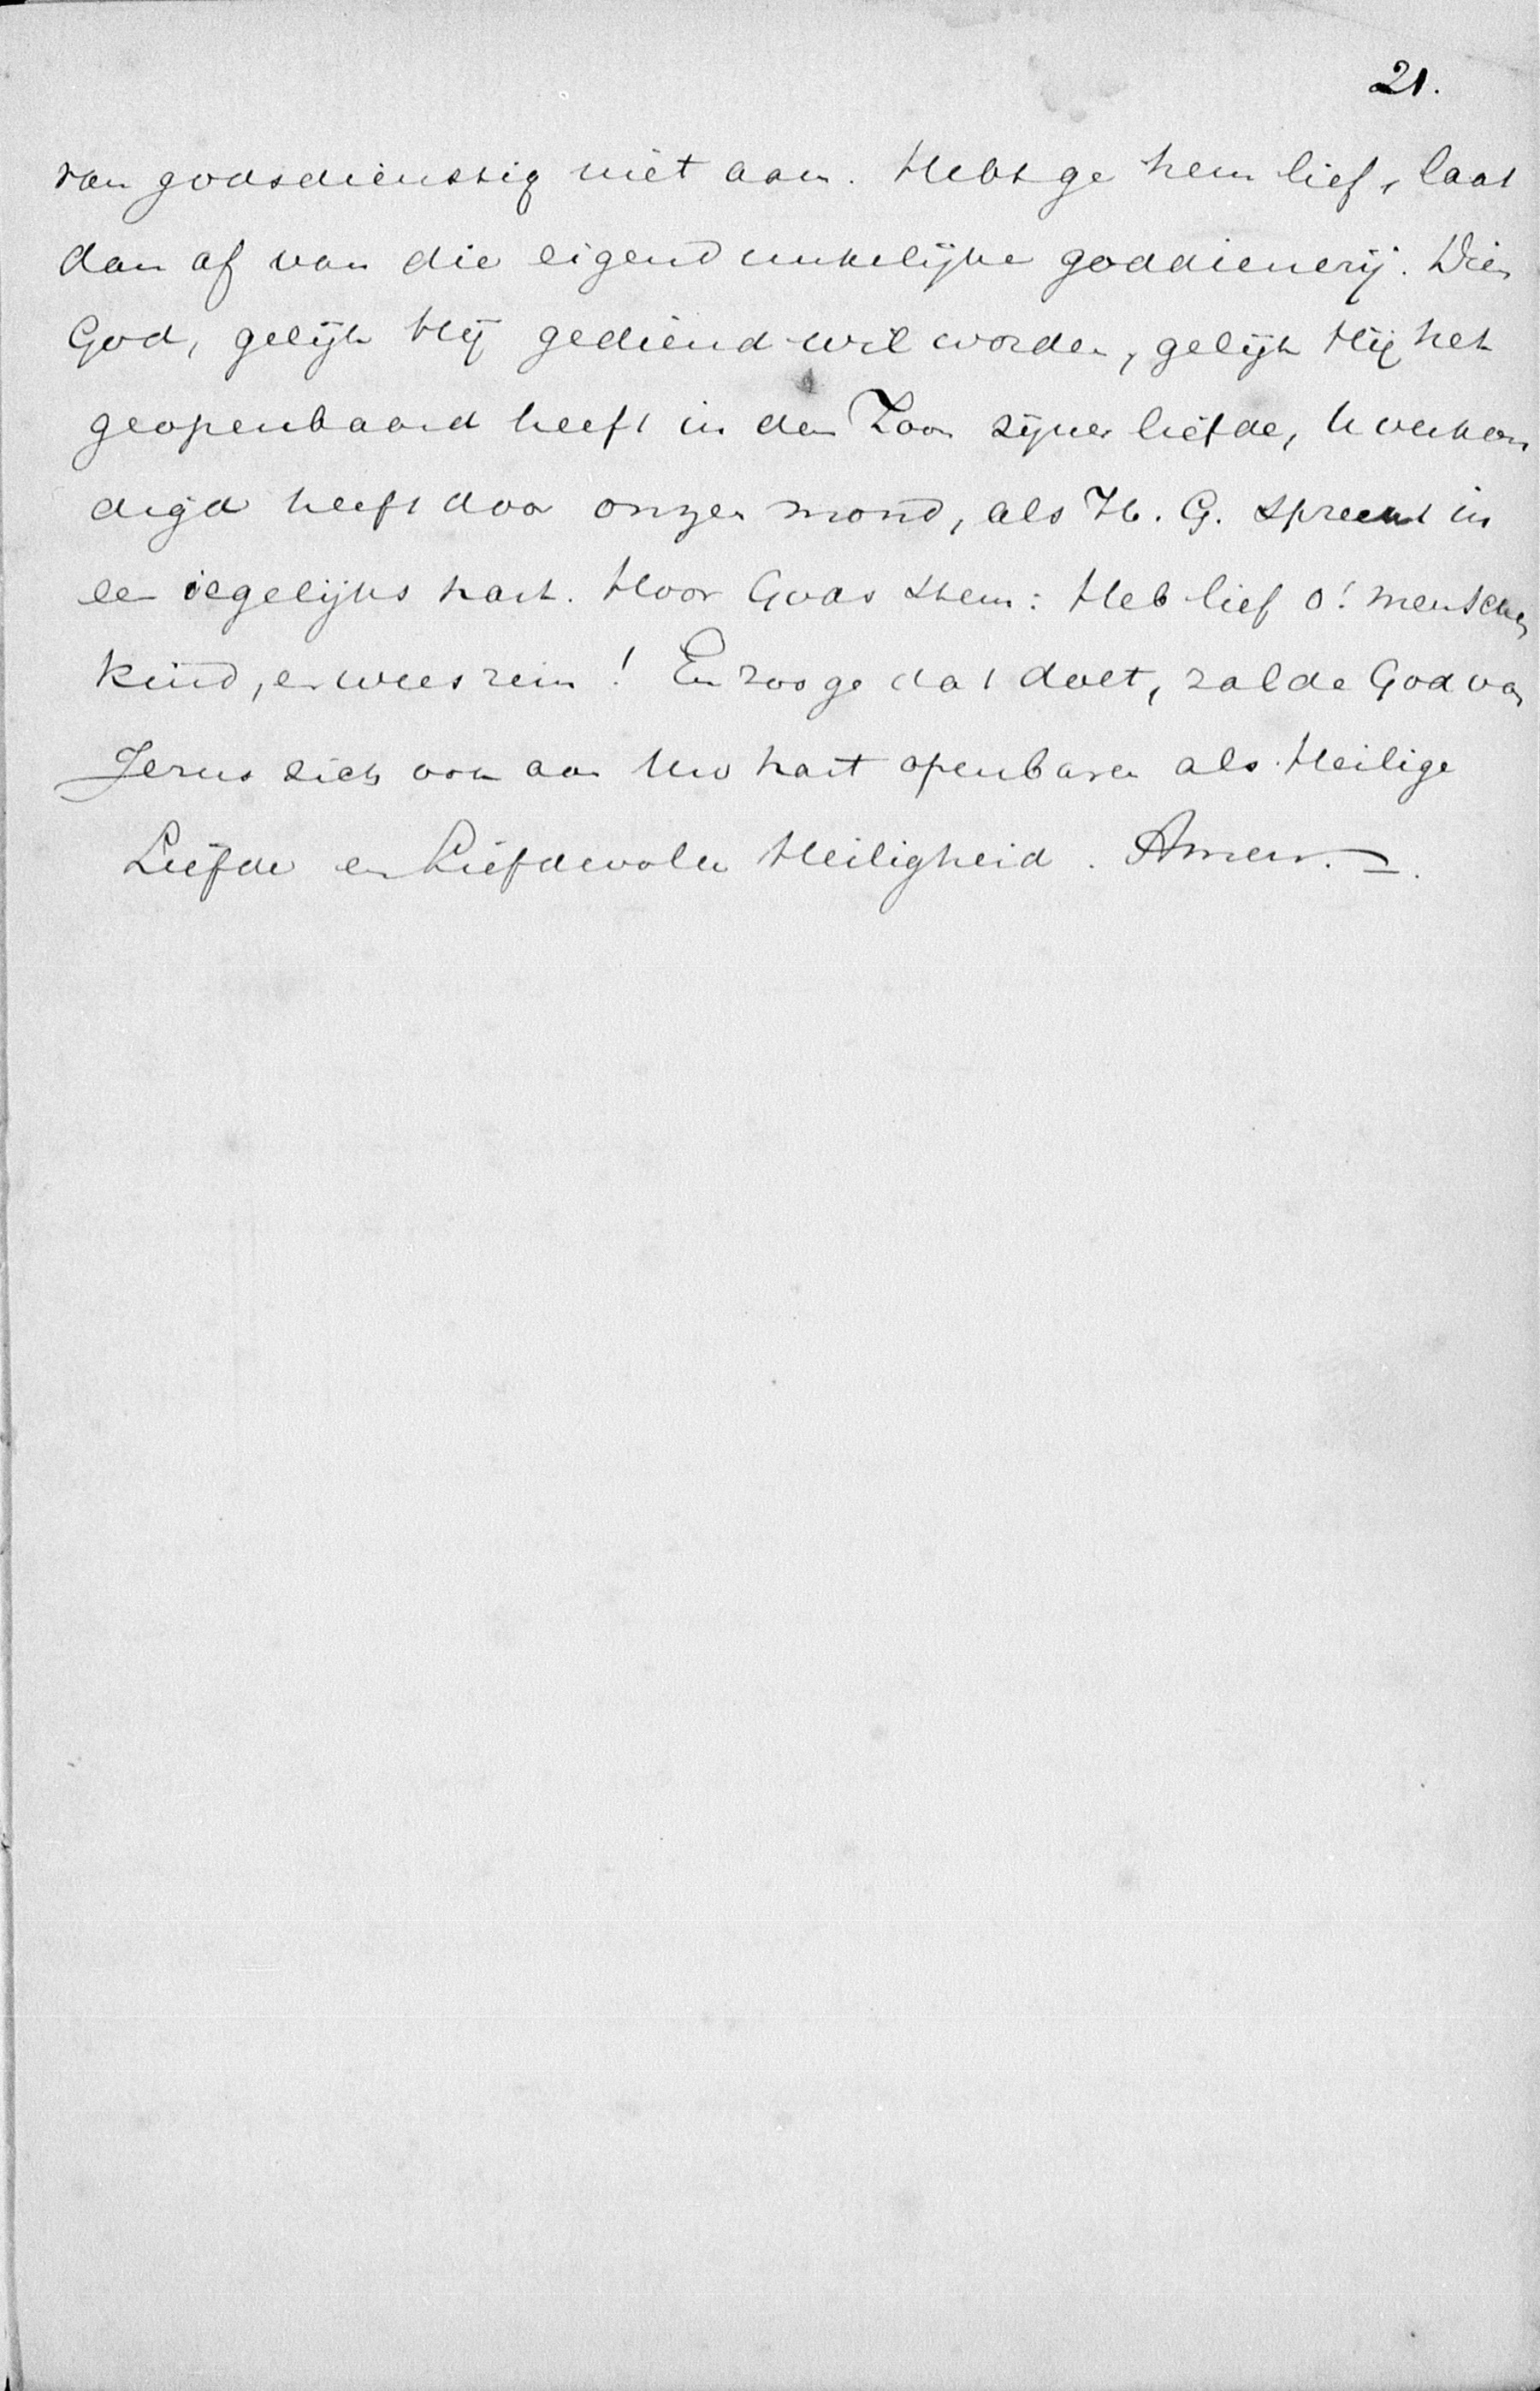 21.
van godsdienstig niet aan. Hebt ge hem lief, laat
dan af van die eigendunkelijke goddienerij. Dien
God, gelijk Hij gediend wil worden, gelijk Hij het
geopenbaard heeft in den Zoon zijner liefde, U verkon
digd heeft door onzen mond, als H. G. spreekt in
een iegelijks hart. Hoor Gods stem: Heb lief o! menschen
kind, en wees rein! En zoo ge dat doet, zal de God van
Jezus zich ook aan Uw hart openbaren als Heilige
Liefde en Liefdevolle Heiligheid. Amen.